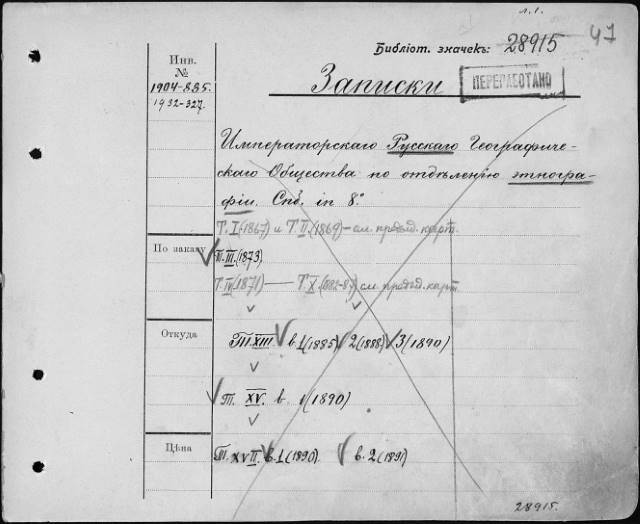 л.1.
47
Библіот. значекъ: 28915
Инв.
№
1904-885.
1932-327.
Записки
ПЕРЕРАБОТАНО
Императорскаго Русскаго Географиче-
скаго Общества по отдѣленію этногра-
фіи. Спб. in 8.°
Т. I (1867) и Т. II. (1869) - см. предыд. карт.
По заказу
Т. III. (1873)
Т. IV (1871) — Т. X. (1882-87) см. предыд. карт.
Откуда
Т. XIII. в. 1 (1895) 2 (1888) 3 (1890)
Т. XV. в. 1 (1890)
Цѣна
Т. XVII. в. 1 (1890). в. 2 (1891)
28915.